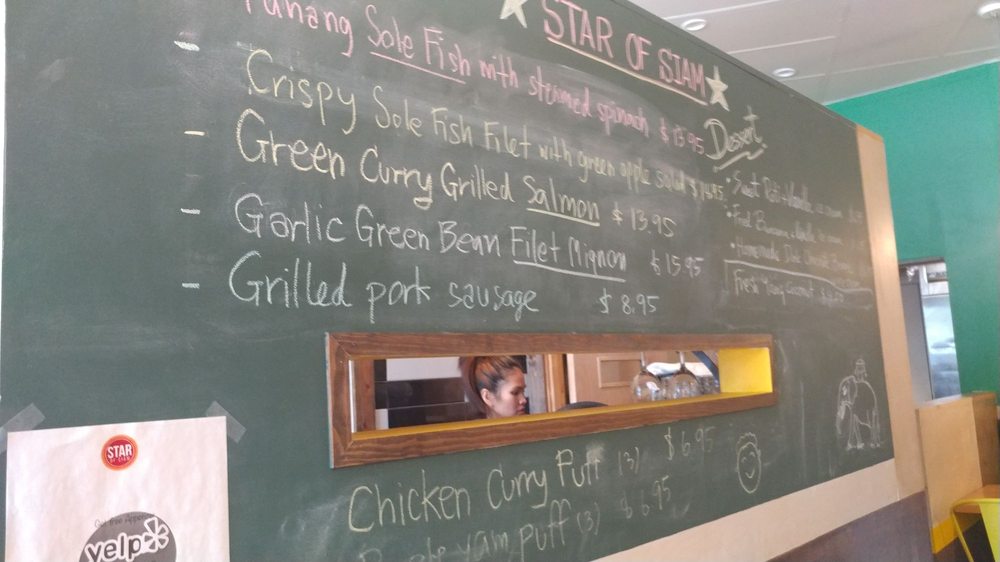 STAR OF SIAM
Panang Sole Fish with steamed spinach $13.95
- Crispy Sole Fish Filet with green apple salad $14.95
- Green Curry Grilled Salmon $13.95
- Garlic Green Bean Filet Mignon $15.95
- Grilled pork sausage $8.95
Dessert
• Sweet Roti + Vanilla ice cream
• Fried Banana + Vanilla ice cream
• Homemade
Fresh Young Coconut
Chicken Curry Puff (3) $6.95
yam puff (3) $6.95
STAR
OF SIAM
Get free Appetizer
yelp